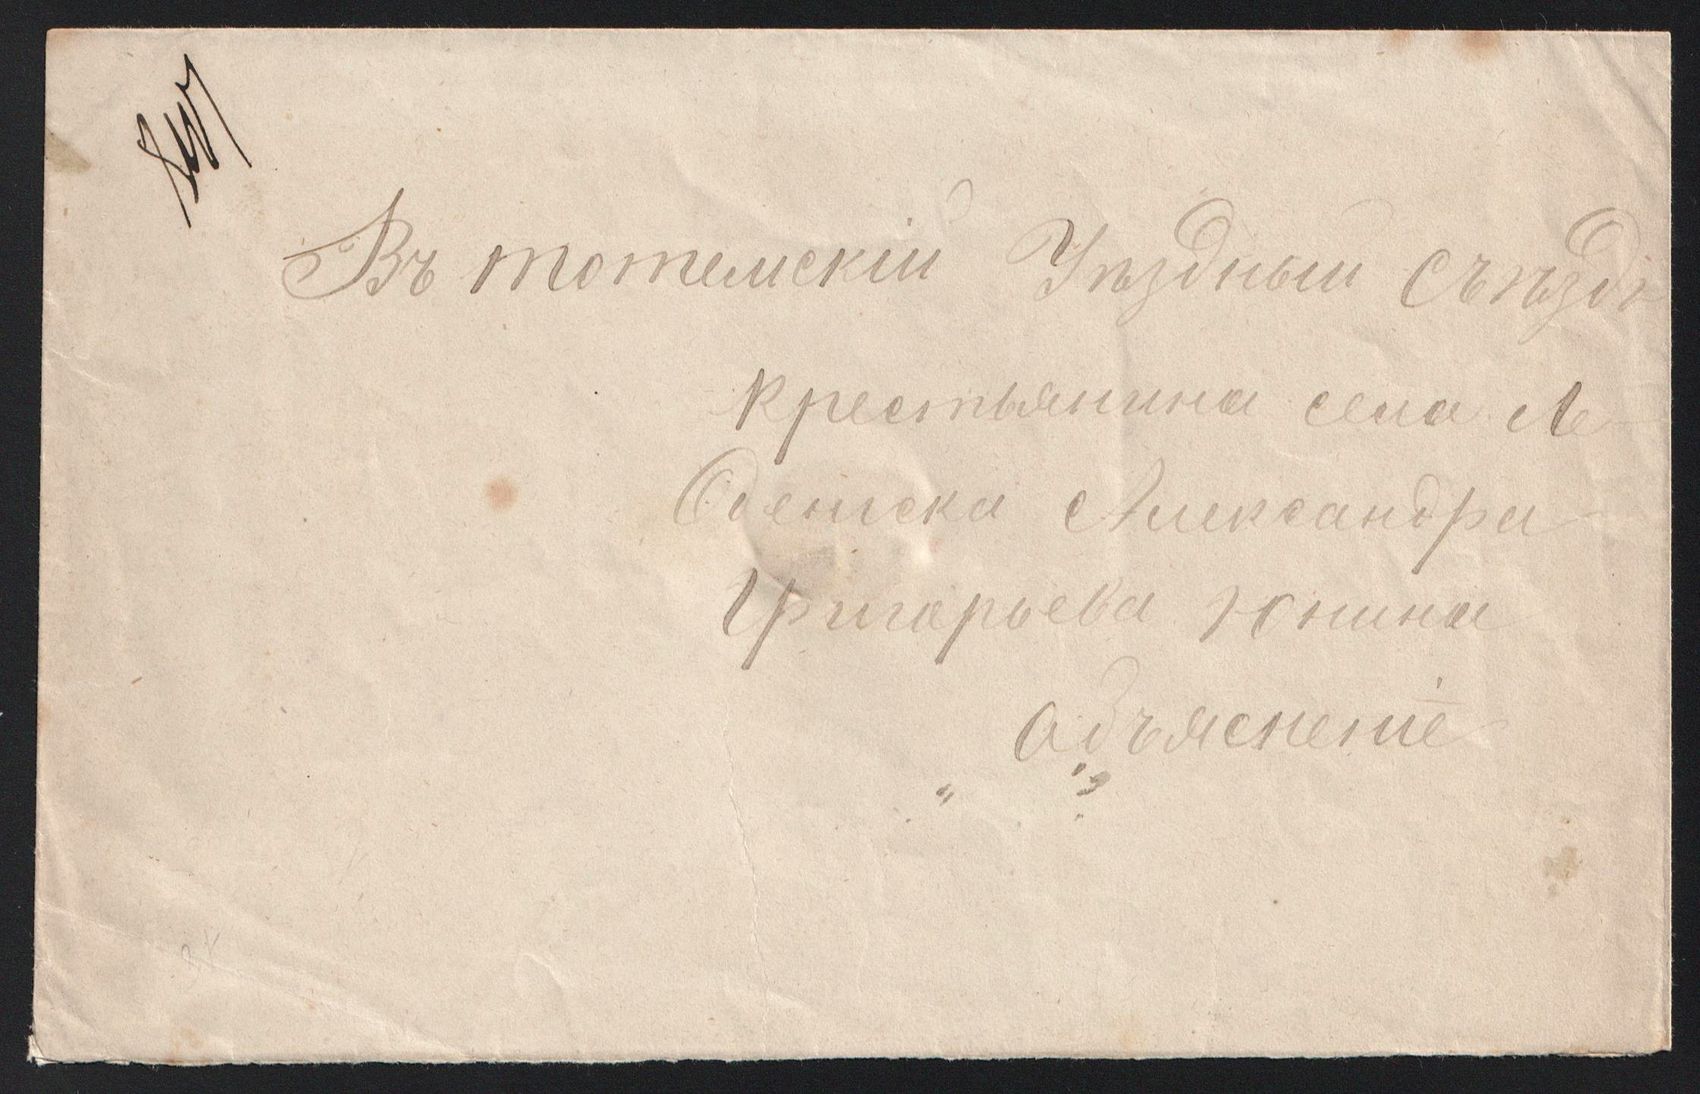 Въ тотемскій Уѣздный съѣздъ
крестьянина села Ле
Оденгска Александра
Григарьева Юнина
Адъяснение